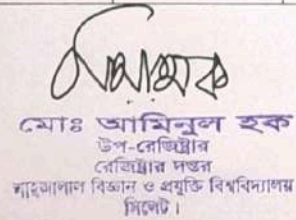 মোঃ আমিনুল হক
উপ-রেজিষ্ট্রার
রেজিষ্ট্রার দপ্তর
শাহজালাল বিজ্ঞান ও প্রযুক্তি বিশ্ববিদ্যালয়
সিলেট।